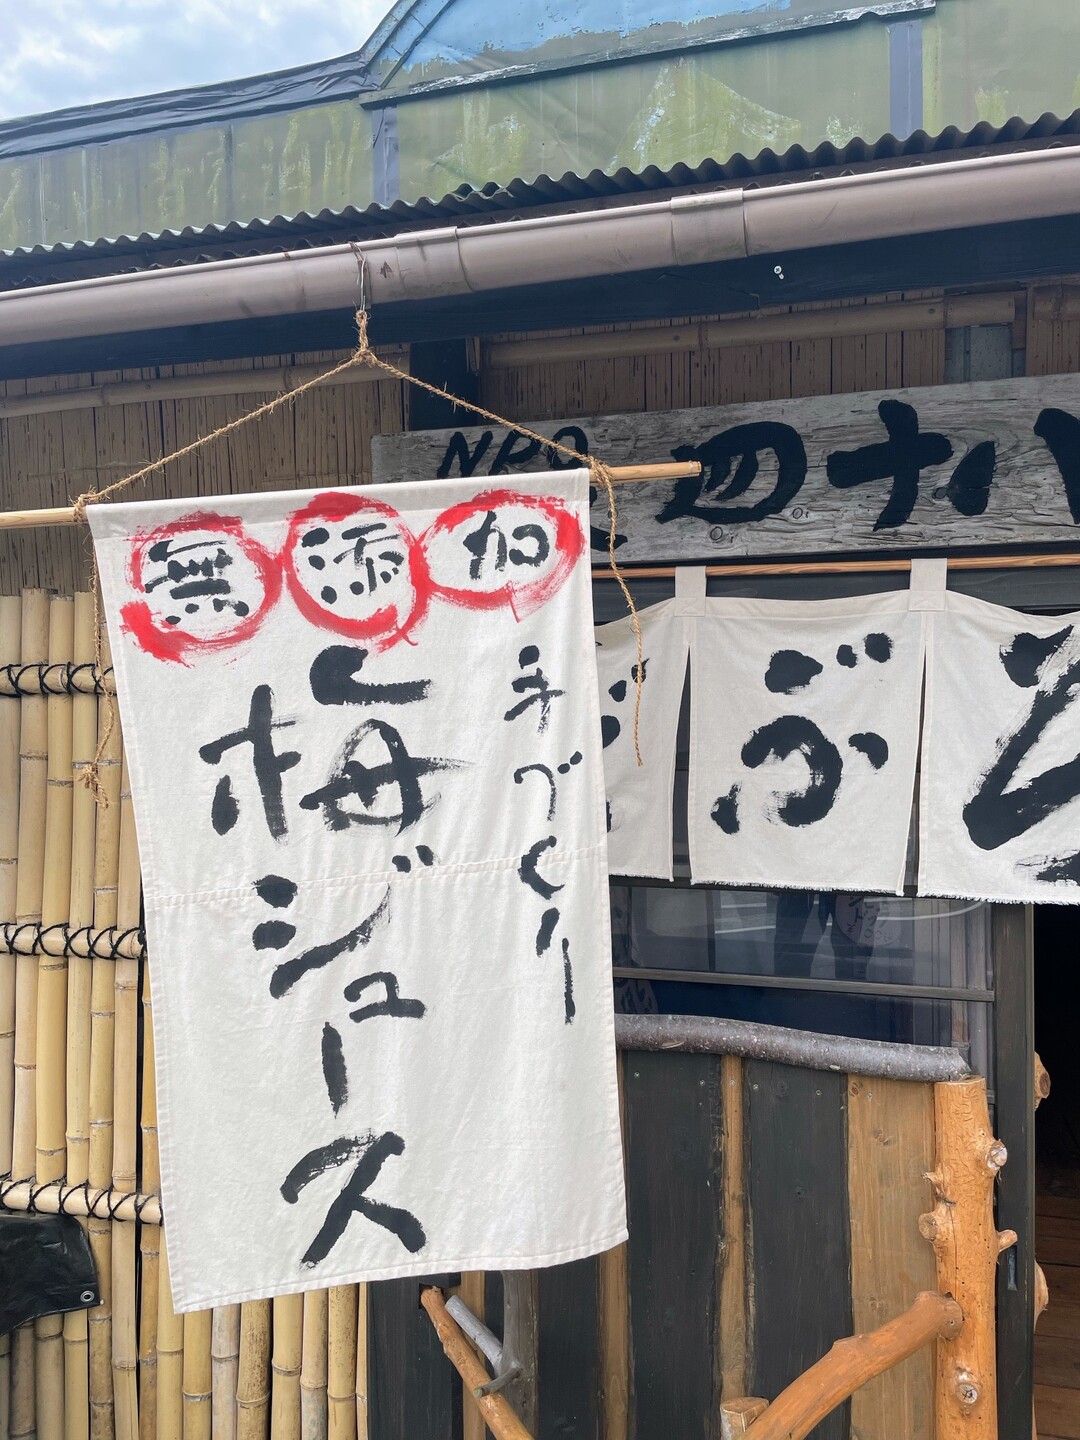 無添加
手づくり
梅ジュース
NPO
四十八
ぶ